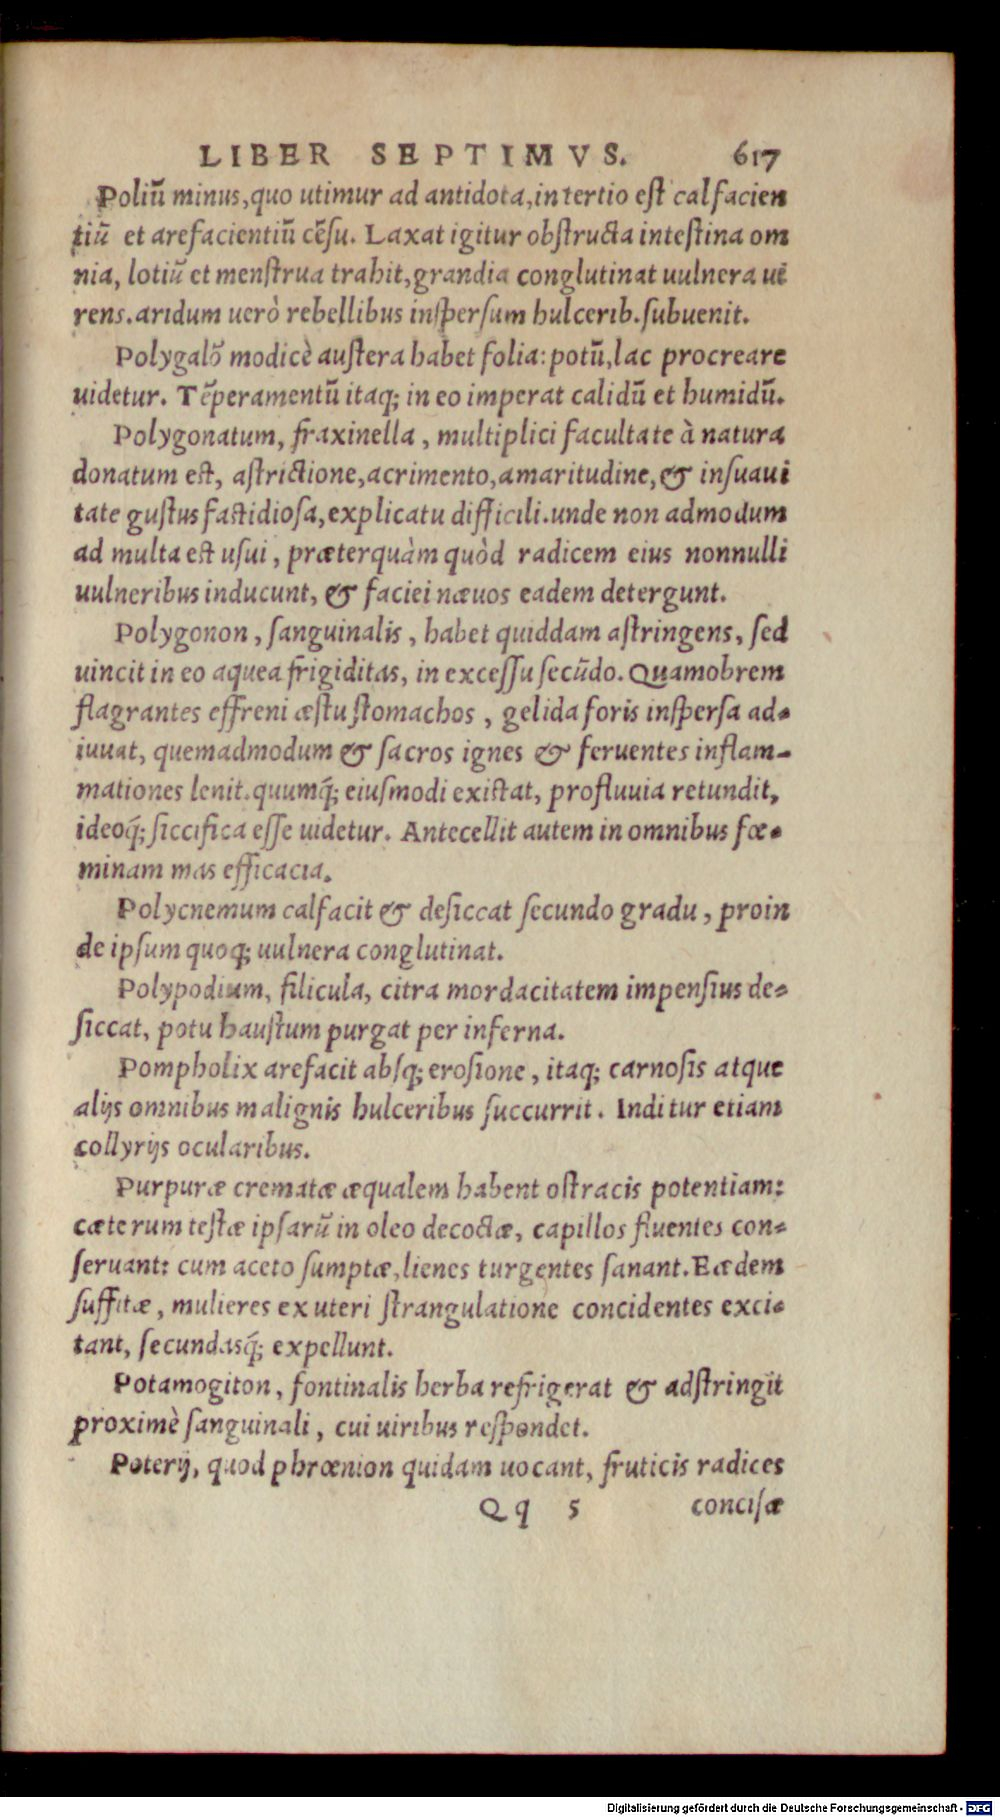 LIBER SEPTIMVS. 617
Poliū minus, quo utimur ad antidota, in tertio est calfacien
tiū et arefacientiū cēsu. Laxat igitur obstructa intestina om
nia, lotiū et menstrua trahit, grandia conglutinat uulnera ui
rens. aridum uerò rebellibus inspersum hulcerib. subuenit.
Polygalō modicè austera habet folia: potū, lac procreare
uidetur. Tēperamentū itaq; in eo imperat calidū et humidū.
Polygonatum, fraxinella, multiplici facultate à natura
donatum est, astrictione, acrimento, amaritudine, & insuaui
tate gustus fastidiosa, explicatu difficili. unde non admodum
ad multa est usui, præterquàm quòd radicem eius nonnulli
uulneribus inducunt, & faciei næuos eadem detergunt.
Polygonon, sanguinalis, habet quiddam astringens, sed
uincit in eo aquea frigiditas, in excessu secūdo. Quamobrem
flagrantes effreni æstu stomachos, gelida foris inspersa ad-
iuuat, quemadmodum & sacros ignes & feruentes inflam-
mationes lenit. quumq́; eiusmodi existat, profluuia retundit,
ideoq́; siccifica esse uidetur. Antecellit autem in omnibus fœ-
minam mas efficacia.
Polycnemum calfacit & desiccat secundo gradu, proin
de ipsum quoq; uulnera conglutinat.
Polypodium, filicula, citra mordacitatem impensius de-
siccat, potu haustum purgat per inferna.
Pompholix arefacit absq; erosione, itaq; carnosis atque
alijs omnibus malignis hulceribus succurrit. Inditur etiam
collyrijs ocularibus.
Purpuræ crematæ æqualem habent ostracis potentiam:
cæterum testæ ipsarū in oleo decoctæ, capillos fluentes con-
seruant: cum aceto sumptæ, lienes turgentes sanant. Eædem
suffitæ, mulieres ex uteri strangulatione concidentes exci-
tant, secundasq́; expellunt.
Potamogiton, fontinalis herba refrigerat & adstringit
proximè sanguinali, cui uiribus respondet.
Poterij, quod phrœnion quidam uocant, fruticis radices
Qq 5 concisæ
Digitalisierung gefördert durch die Deutsche Forschungsgemeinschaft - DFG